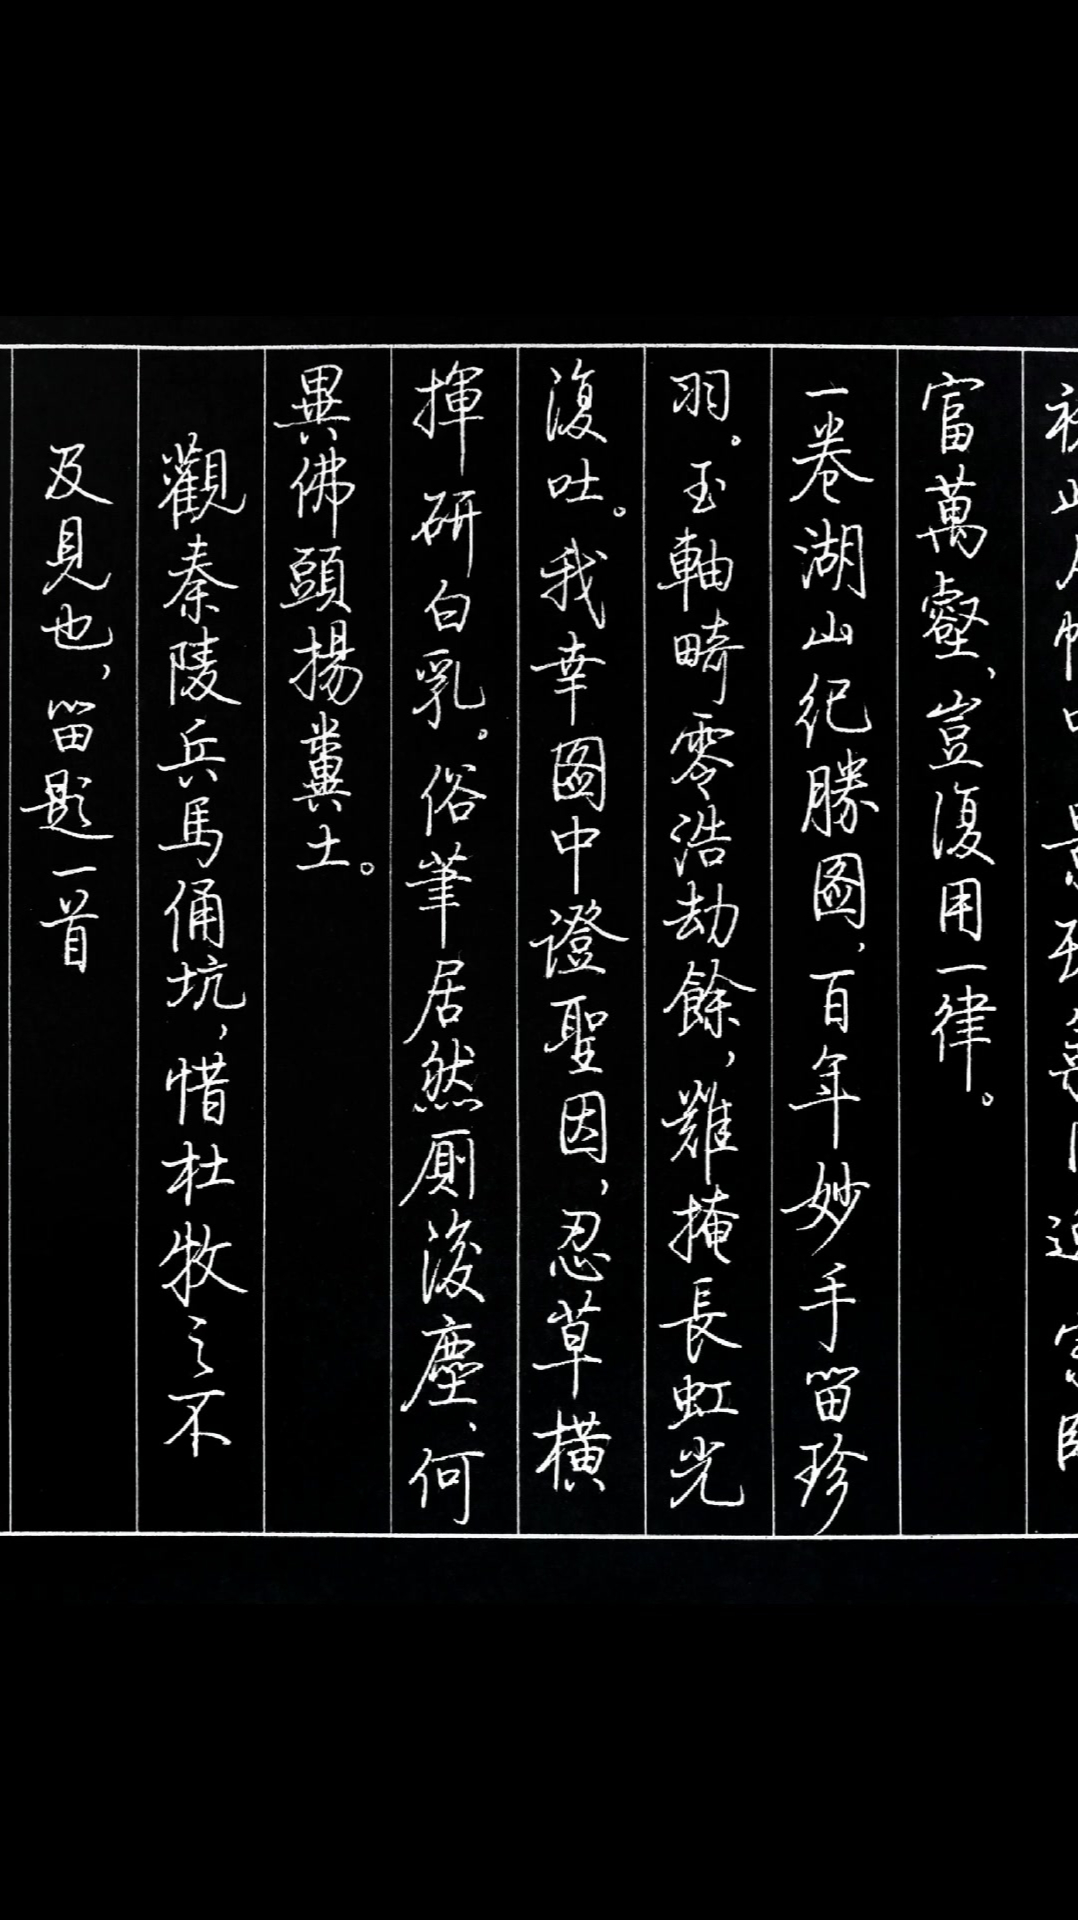 富萬壑、豈復用一律。
一卷湖山紀勝圖，百年妙手留珍
羽。玉軸畸零浩劫餘，難掩長虹光
復吐。我幸圖中證聖因，忍草橫
揮研白乳。俗筆居然廁後塵、何
異佛頭揚糞土。
觀秦陵兵馬俑坑，惜杜牧之不
及見也，留題一首